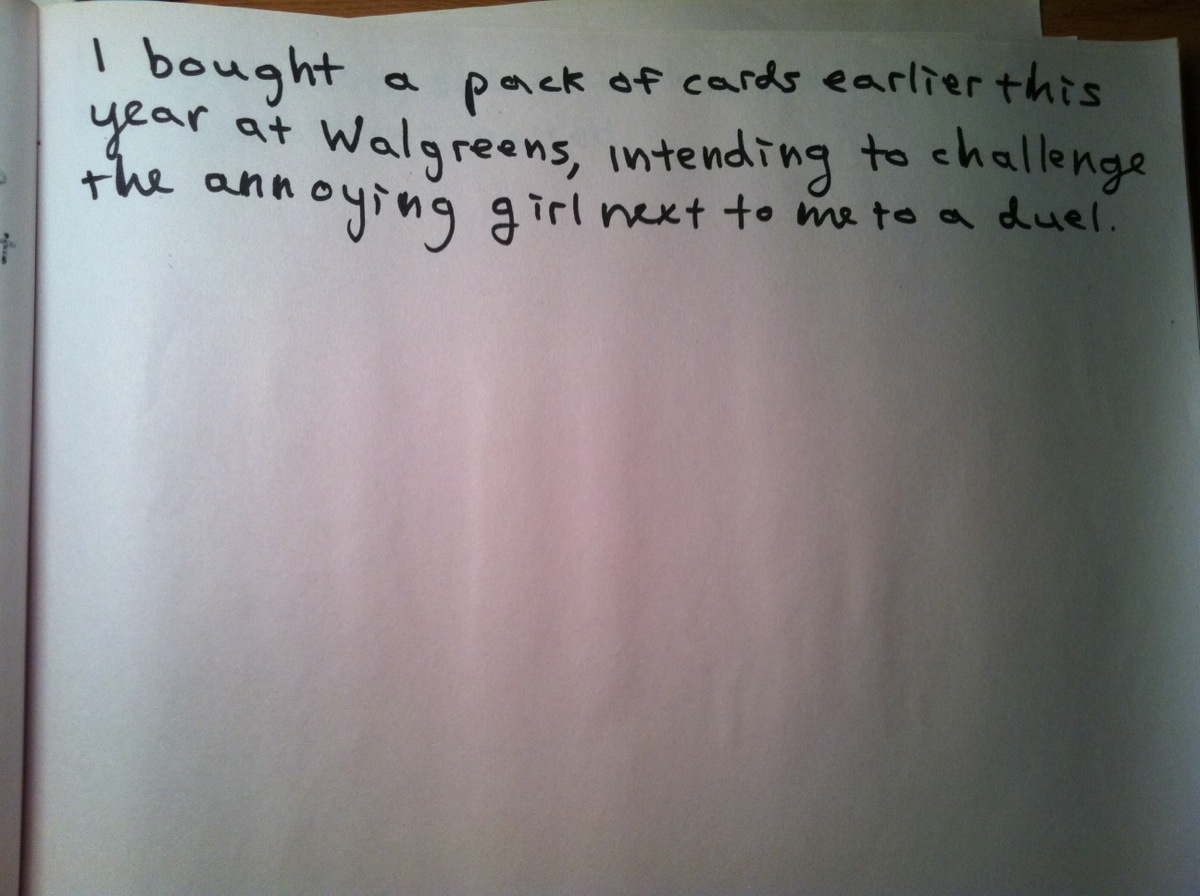 I bought a pack of cards earlier this
year at Walgreens, intending to challenge
the annoying girl next to me to a duel.